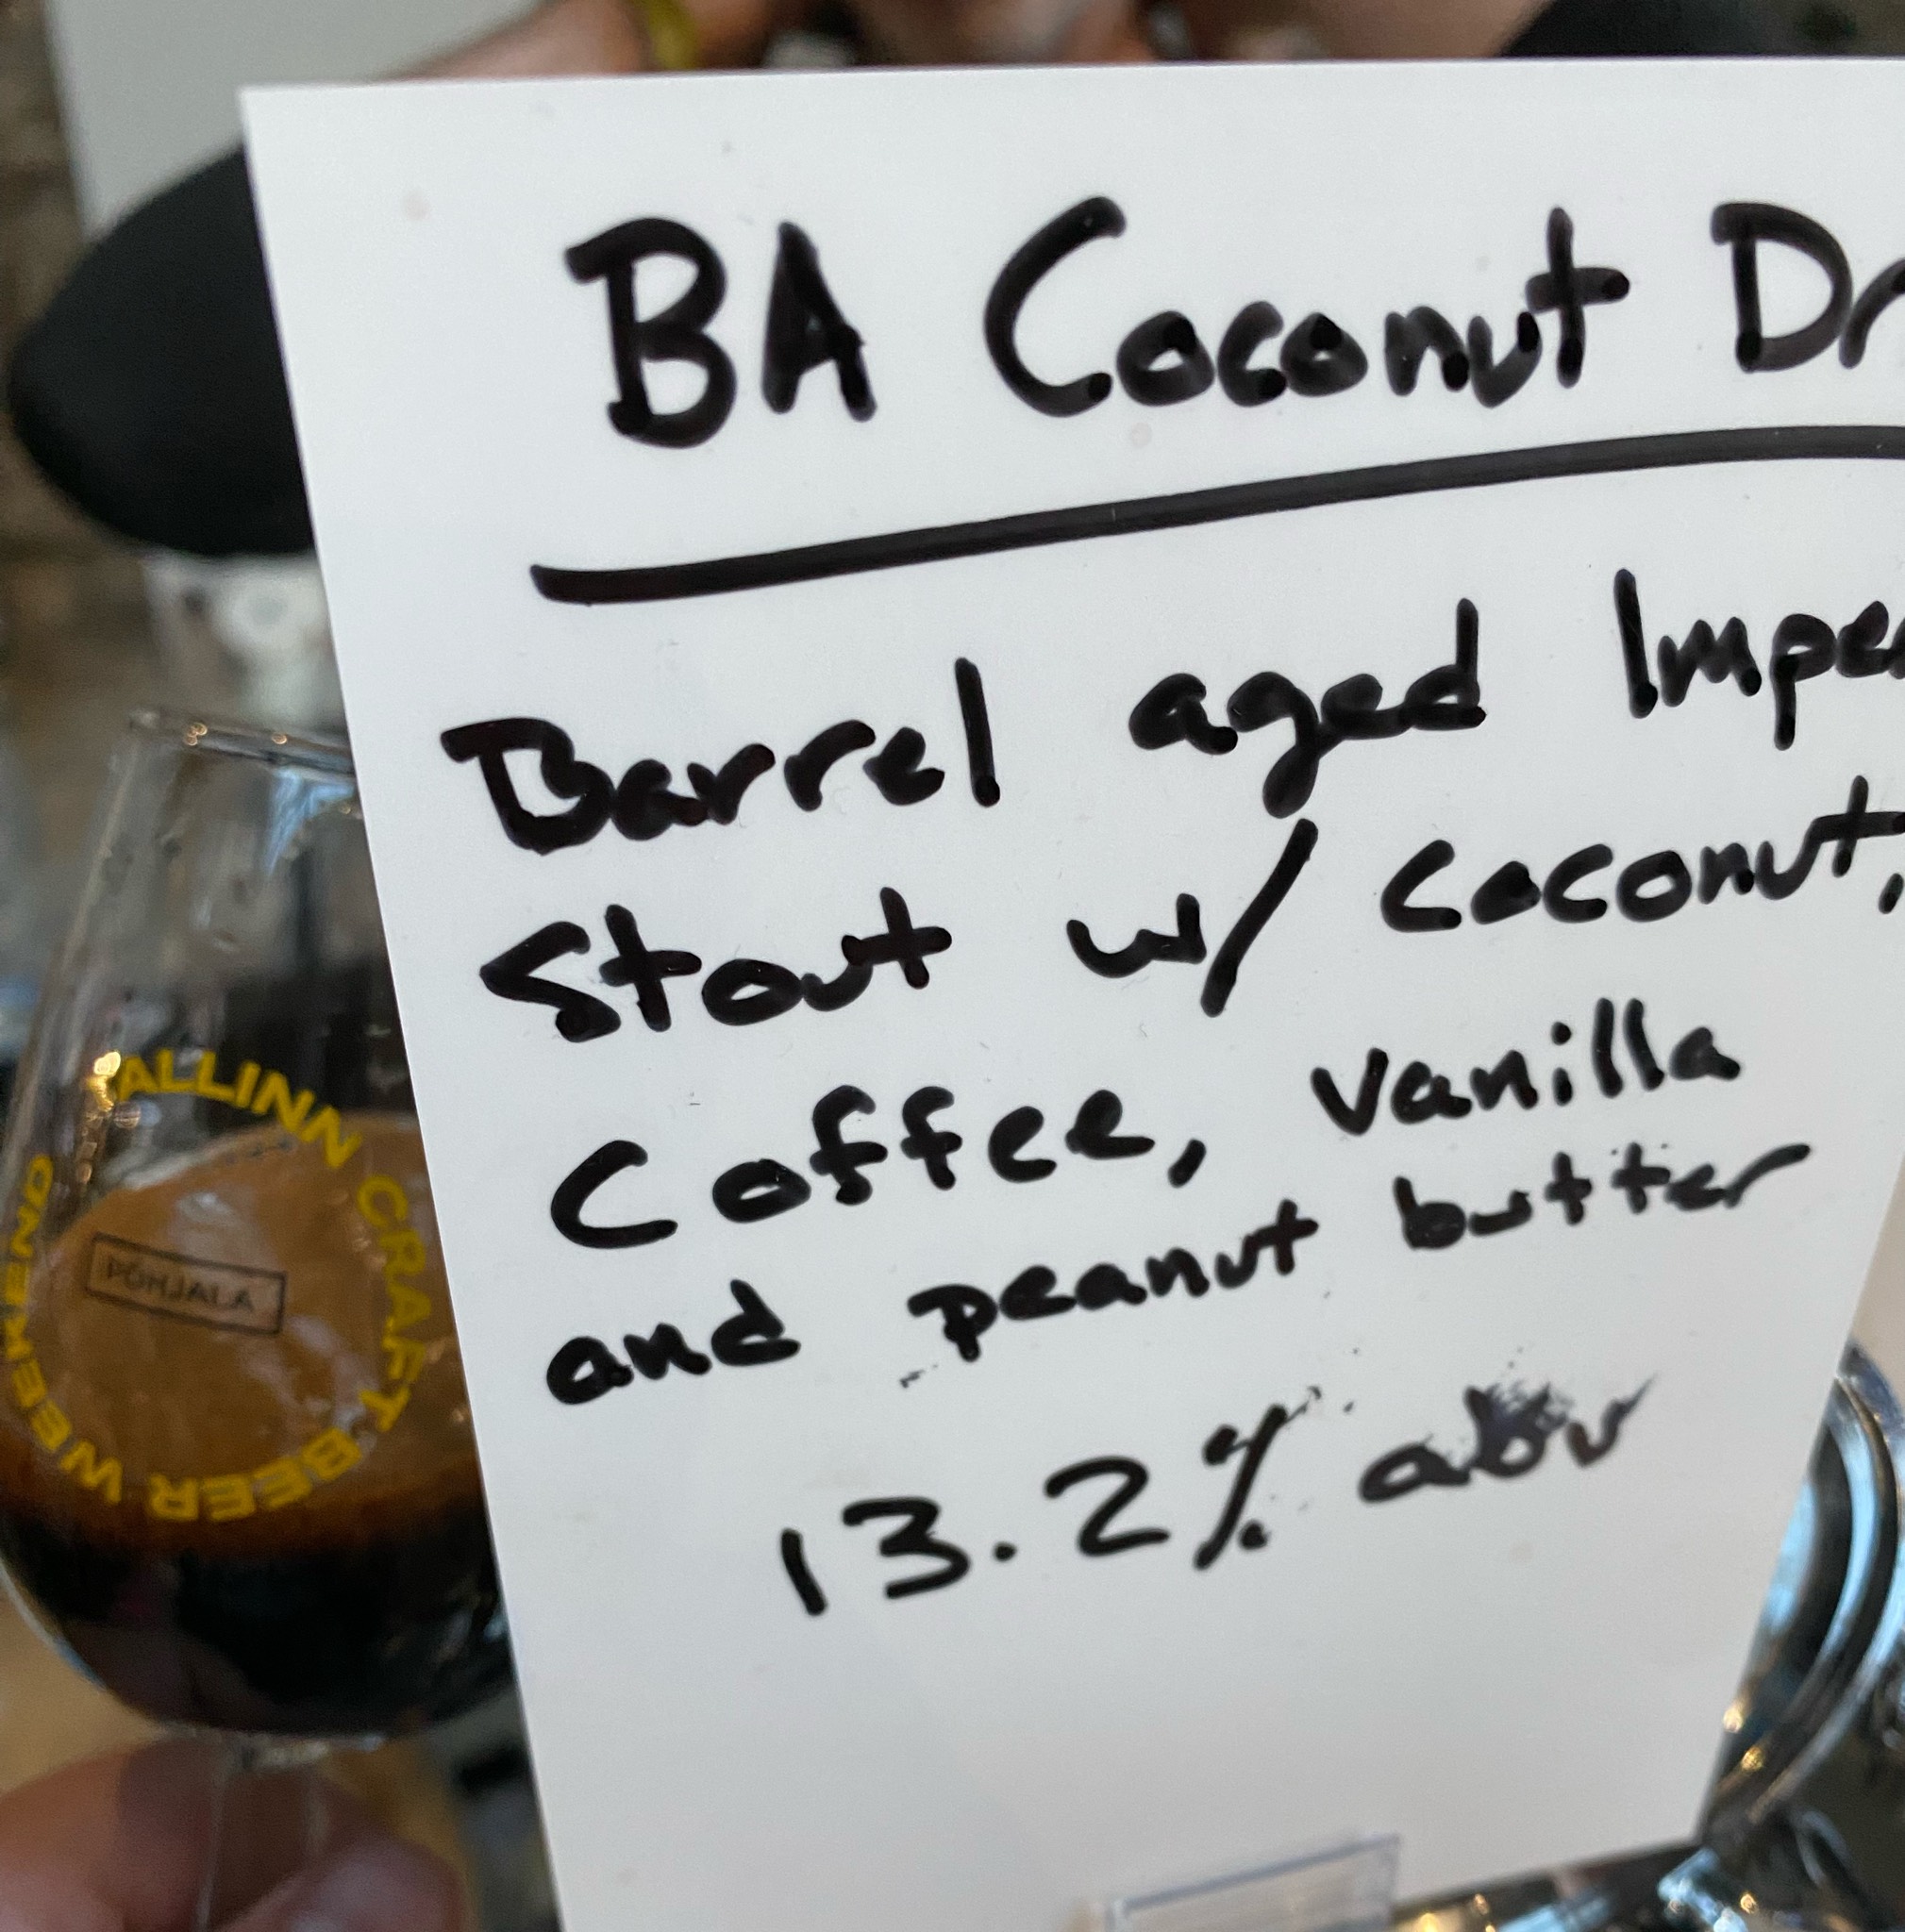 BA Coconut Dr
Barrel aged Impe
Stout w/ coconut,
Coffee, vanilla
and peanut butter
13.2% abv
TALLINN CRAFT BEER WEEKEND
PÕHJALA